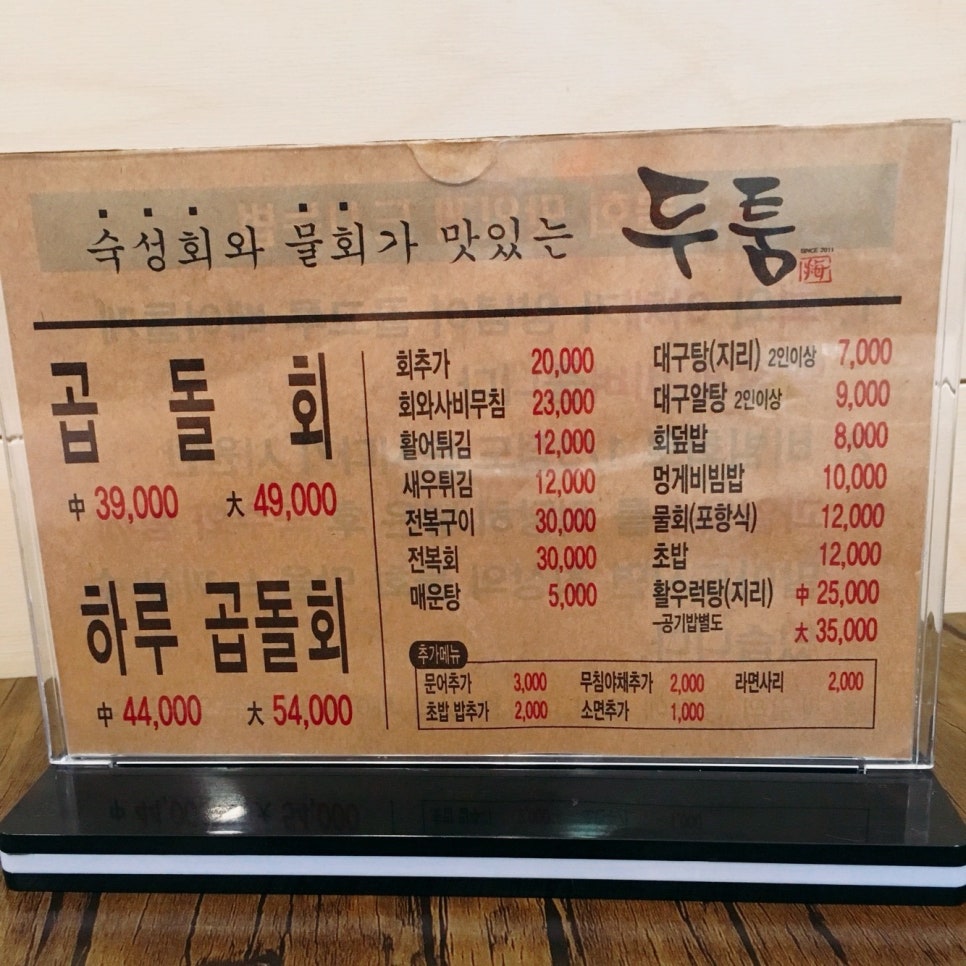 숙성회와 물회가 맛있는 두툼
SINCE 2011
곱돌회
中 39,000 大 49,000
하루 곱돌회
中 44,000 大 54,000
회추가 20,000
회와사비무침 23,000
활어튀김 12,000
새우튀김 12,000
전복구이 30,000
전복회 30,000
매운탕 5,000
대구탕(지리) 2인이상 7,000
대구알탕 2인이상 9,000
회덮밥 8,000
멍게비빔밥 10,000
물회(포항식) 12,000
초밥 12,000
활우럭탕(지리) 中 25,000
-공기밥별도 大 35,000
추가메뉴
문어추가 3,000 무침야채추가 2,000 라면사리 2,000
초밥 밥추가 2,000 소면추가 1,000